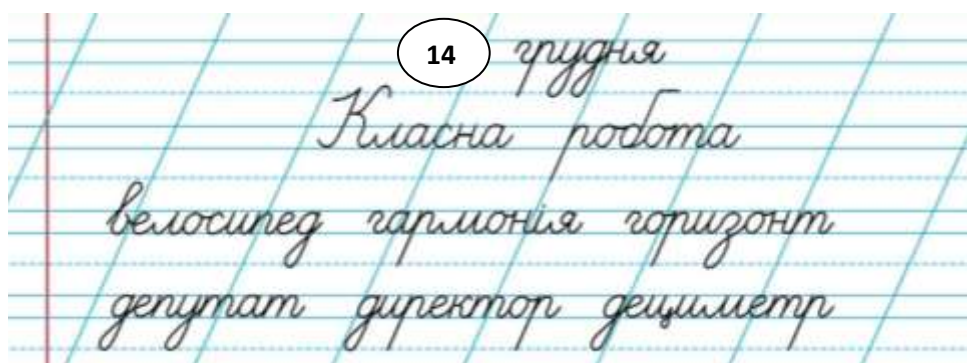 14 грудня
Класна робота
велосипед гармонія горизонт
депутат директор дециметр